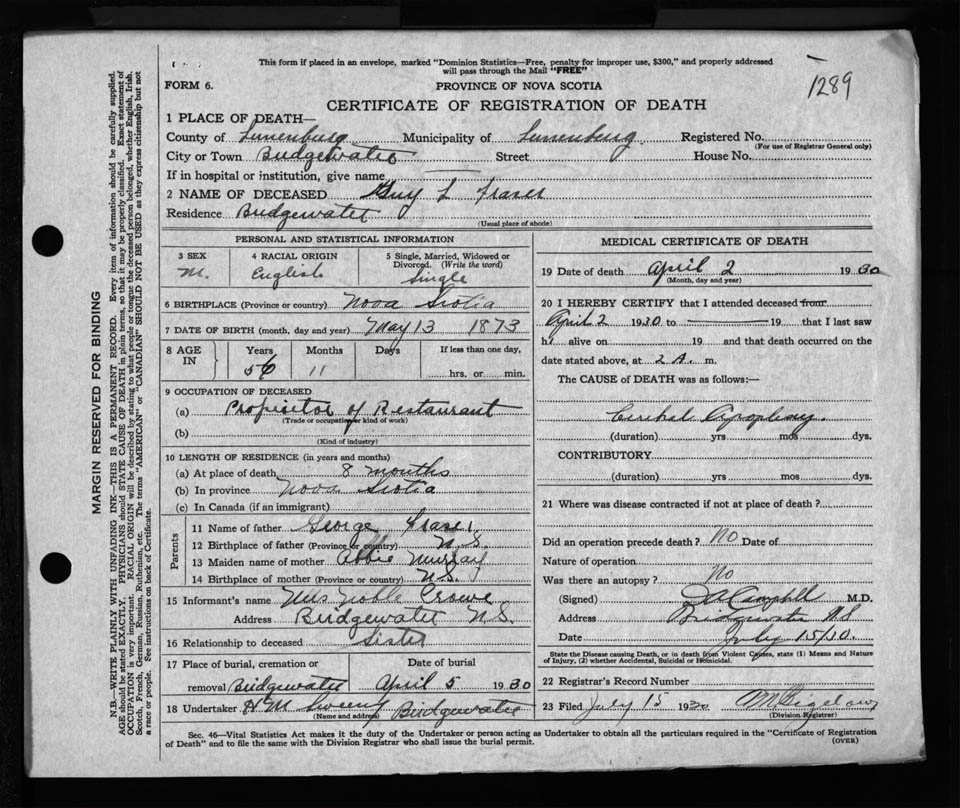 This form if placed in an envelope, marked "Dominion Statistics—Free, penalty for improper use, $300," and properly addressed
will pass through the Mail "FREE"
1289
FORM 6.
PROVINCE OF NOVA SCOTIA
CERTIFICATE OF REGISTRATION OF DEATH
1 PLACE OF DEATH—
County of Lunenburg Municipality of Lunenburg Registered No.
(For use of Registrar General only)
City or Town Bridgewater Street House No.
If in hospital or institution, give name
2 NAME OF DECEASED Guy L Fraser
Residence Bridgewater
(Usual place of abode)
PERSONAL AND STATISTICAL INFORMATION
3 SEX 4 RACIAL ORIGIN 5 Single, Married, Widowed or
Divorced. (Write the word)
M. English Single
6 BIRTHPLACE (Province or country) Nova Scotia
7 DATE OF BIRTH (month, day and year) May 13 1873
8 AGE IN Years Months Days If less than one day,
56 11 hrs. or min.
9 OCCUPATION OF DECEASED
(a) Proprietor of Restaurant
(Trade or occupation or kind of work)
(b)
(Kind of industry)
10 LENGTH OF RESIDENCE (in years and months)
(a) At place of death 8 months
(b) In province Nova Scotia
(c) In Canada (if an immigrant)
Parents
11 Name of father George Fraser
12 Birthplace of father (Province or country) N.S.
13 Maiden name of mother Abbie Murray
14 Birthplace of mother (Province or country) N.S.
15 Informant's name Mrs Noble Crowe
Address Bridgewater N.S.
16 Relationship to deceased Sister
17 Place of burial, cremation or Date of burial
removal Bridgewater April 5 1930
18 Undertaker H M Sweeny Bridgewater
(Name and address)
MEDICAL CERTIFICATE OF DEATH
19 Date of death April 2 1930
(Month, day and year)
20 I HEREBY CERTIFY that I attended deceased from
April 2 1930 to 19 that I last saw
h alive on 19 and that death occurred on the
date stated above, at 2 A. m.
The CAUSE of DEATH was as follows:—
Apoplexy
(duration) yrs mos dys.
CONTRIBUTORY
(duration) yrs mos dys.
21 Where was disease contracted if not at place of death?
Did an operation precede death? No Date of
Nature of operation
Was there an autopsy? No
(Signed) Campbell M.D.
Address Bridgewater NS
Date July 15/30.
State the Disease causing Death, or in death from Violent Causes, state (1) Means and Nature
of Injury, (2) whether Accidental, Suicidal or Homicidal.
22 Registrar's Record Number
23 Filed July 15 1930 Bigelow
(Division Registrar)
Sec. 46—Vital Statistics Act makes it the duty of the Undertaker or person acting as Undertaker to obtain all the particulars required in the "Certificate of Registration
of Death" and to file the same with the Division Registrar who shall issue the burial permit.
(OVER)
MARGIN RESERVED FOR BINDING
N.B.—WRITE PLAINLY WITH UNFADING INK—THIS IS A PERMANENT RECORD. Every item of information should be carefully supplied.
AGE should be stated EXACTLY. PHYSICIANS should STATE CAUSE OF DEATH in plain terms, so that it may be properly classified. Exact statement of
OCCUPATION is very important. RACIAL ORIGIN will be described by stating to what people or tongue the deceased person belonged, whether English, Irish,
Scotch, French, German, Russian, Ruthenian, etc. The terms "AMERICAN" or "CANADIAN" SHOULD NOT BE USED as they express citizenship but not
a race or people. See instructions on back of Certificate.